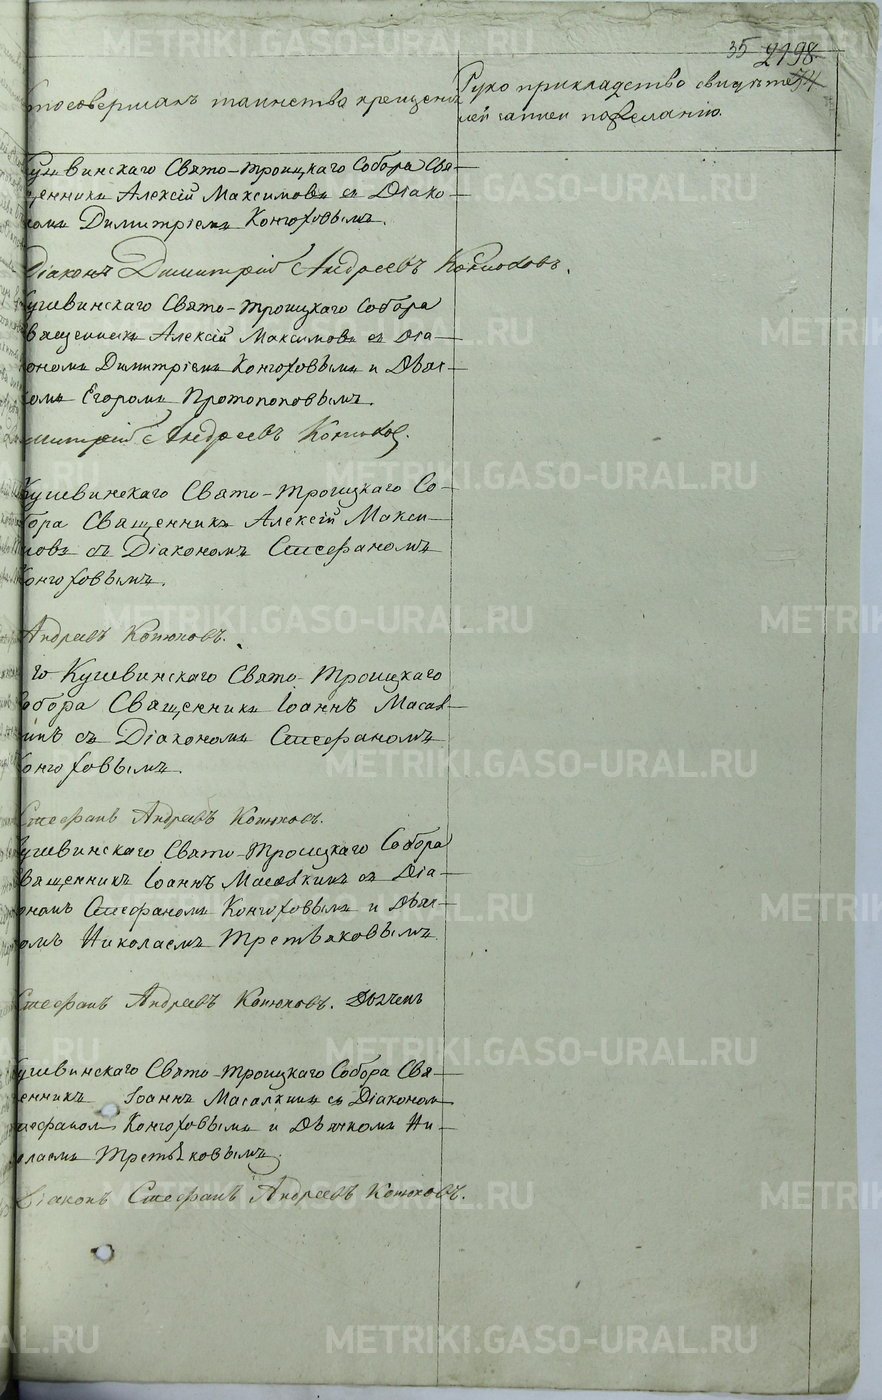 35 2198
Кто совершалъ таинство крещенія
Руко прикладство свидѣте
лей записи по желанію.
Кушвинскаго Свято-Троицкаго Собора Свя-
щенникъ Алексій Максимовъ съ Діако-
номъ Димитріемъ Конюховымъ.
Діаконъ Димитрій Андреевъ Конюховъ.
Кушевинскаго Свято-Троицкаго Собора
Священникъ Алексій Максимовъ съ Діа-
кономъ Димитріемъ Конюховымъ и Дьяч-
комъ Егоромъ Протопоповымъ.
Димитрій Андреевъ Конюховъ.
Кушевинскаго Свято-Троицкаго Со-
бора Священникъ Алексій Макси-
мовъ съ Діакономъ Стефаномъ
Конюховымъ.
Андреевъ Конюховъ.
го Кушевинскаго Свято-Троицкаго
Собора Священникъ Іоаннъ Масал-
кинъ съ Діакономъ Стефаномъ
Конюховымъ.
Стефанъ Андреевъ Конюховъ.
Кушевинскаго Свято-Троицкаго Собора
Священникъ Іоаннъ Масалкинъ съ Діа-
кономъ Стефаномъ Конюховымъ и Дьяч-
комъ Николаемъ Третьяковымъ
Стефанъ Андреевъ Конюховъ.
Кушевинскаго Свято-Троицкаго Собора Свя-
щенникъ Іоаннъ Масалкинъ съ Діакономъ
Стефаномъ Конюховымъ и Дьячкомъ Ни-
колаемъ Третьяковымъ.
Діаконъ Стефанъ Андреевъ Конюховъ.
METRIKI.GASO-URAL.RU